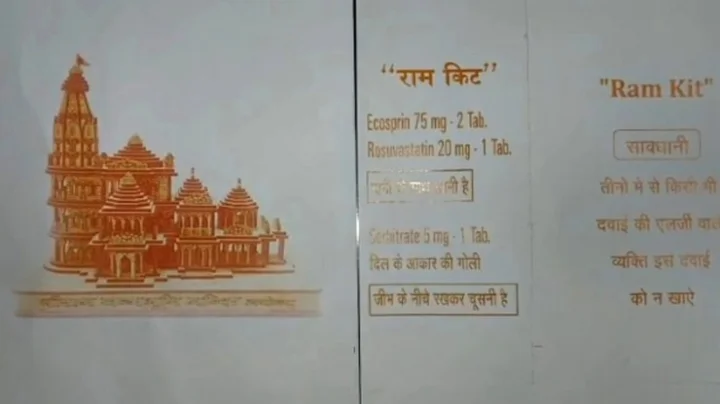 “राम किट”
Ecosprin 75 mg - 2 Tab.
Rosuvastatin 20 mg - 1 Tab.
पानी के साथ खानी है
Sorbitrate 5 mg - 1 Tab.
दिल के आकार की गोली
जीभ के नीचे रखकर चूसनी है
"Ram Kit"
सावधानी
तीनो मे से किसी भी
दवाई की एलर्जी वाले
व्यक्ति इस दवाई
को न खाऐ